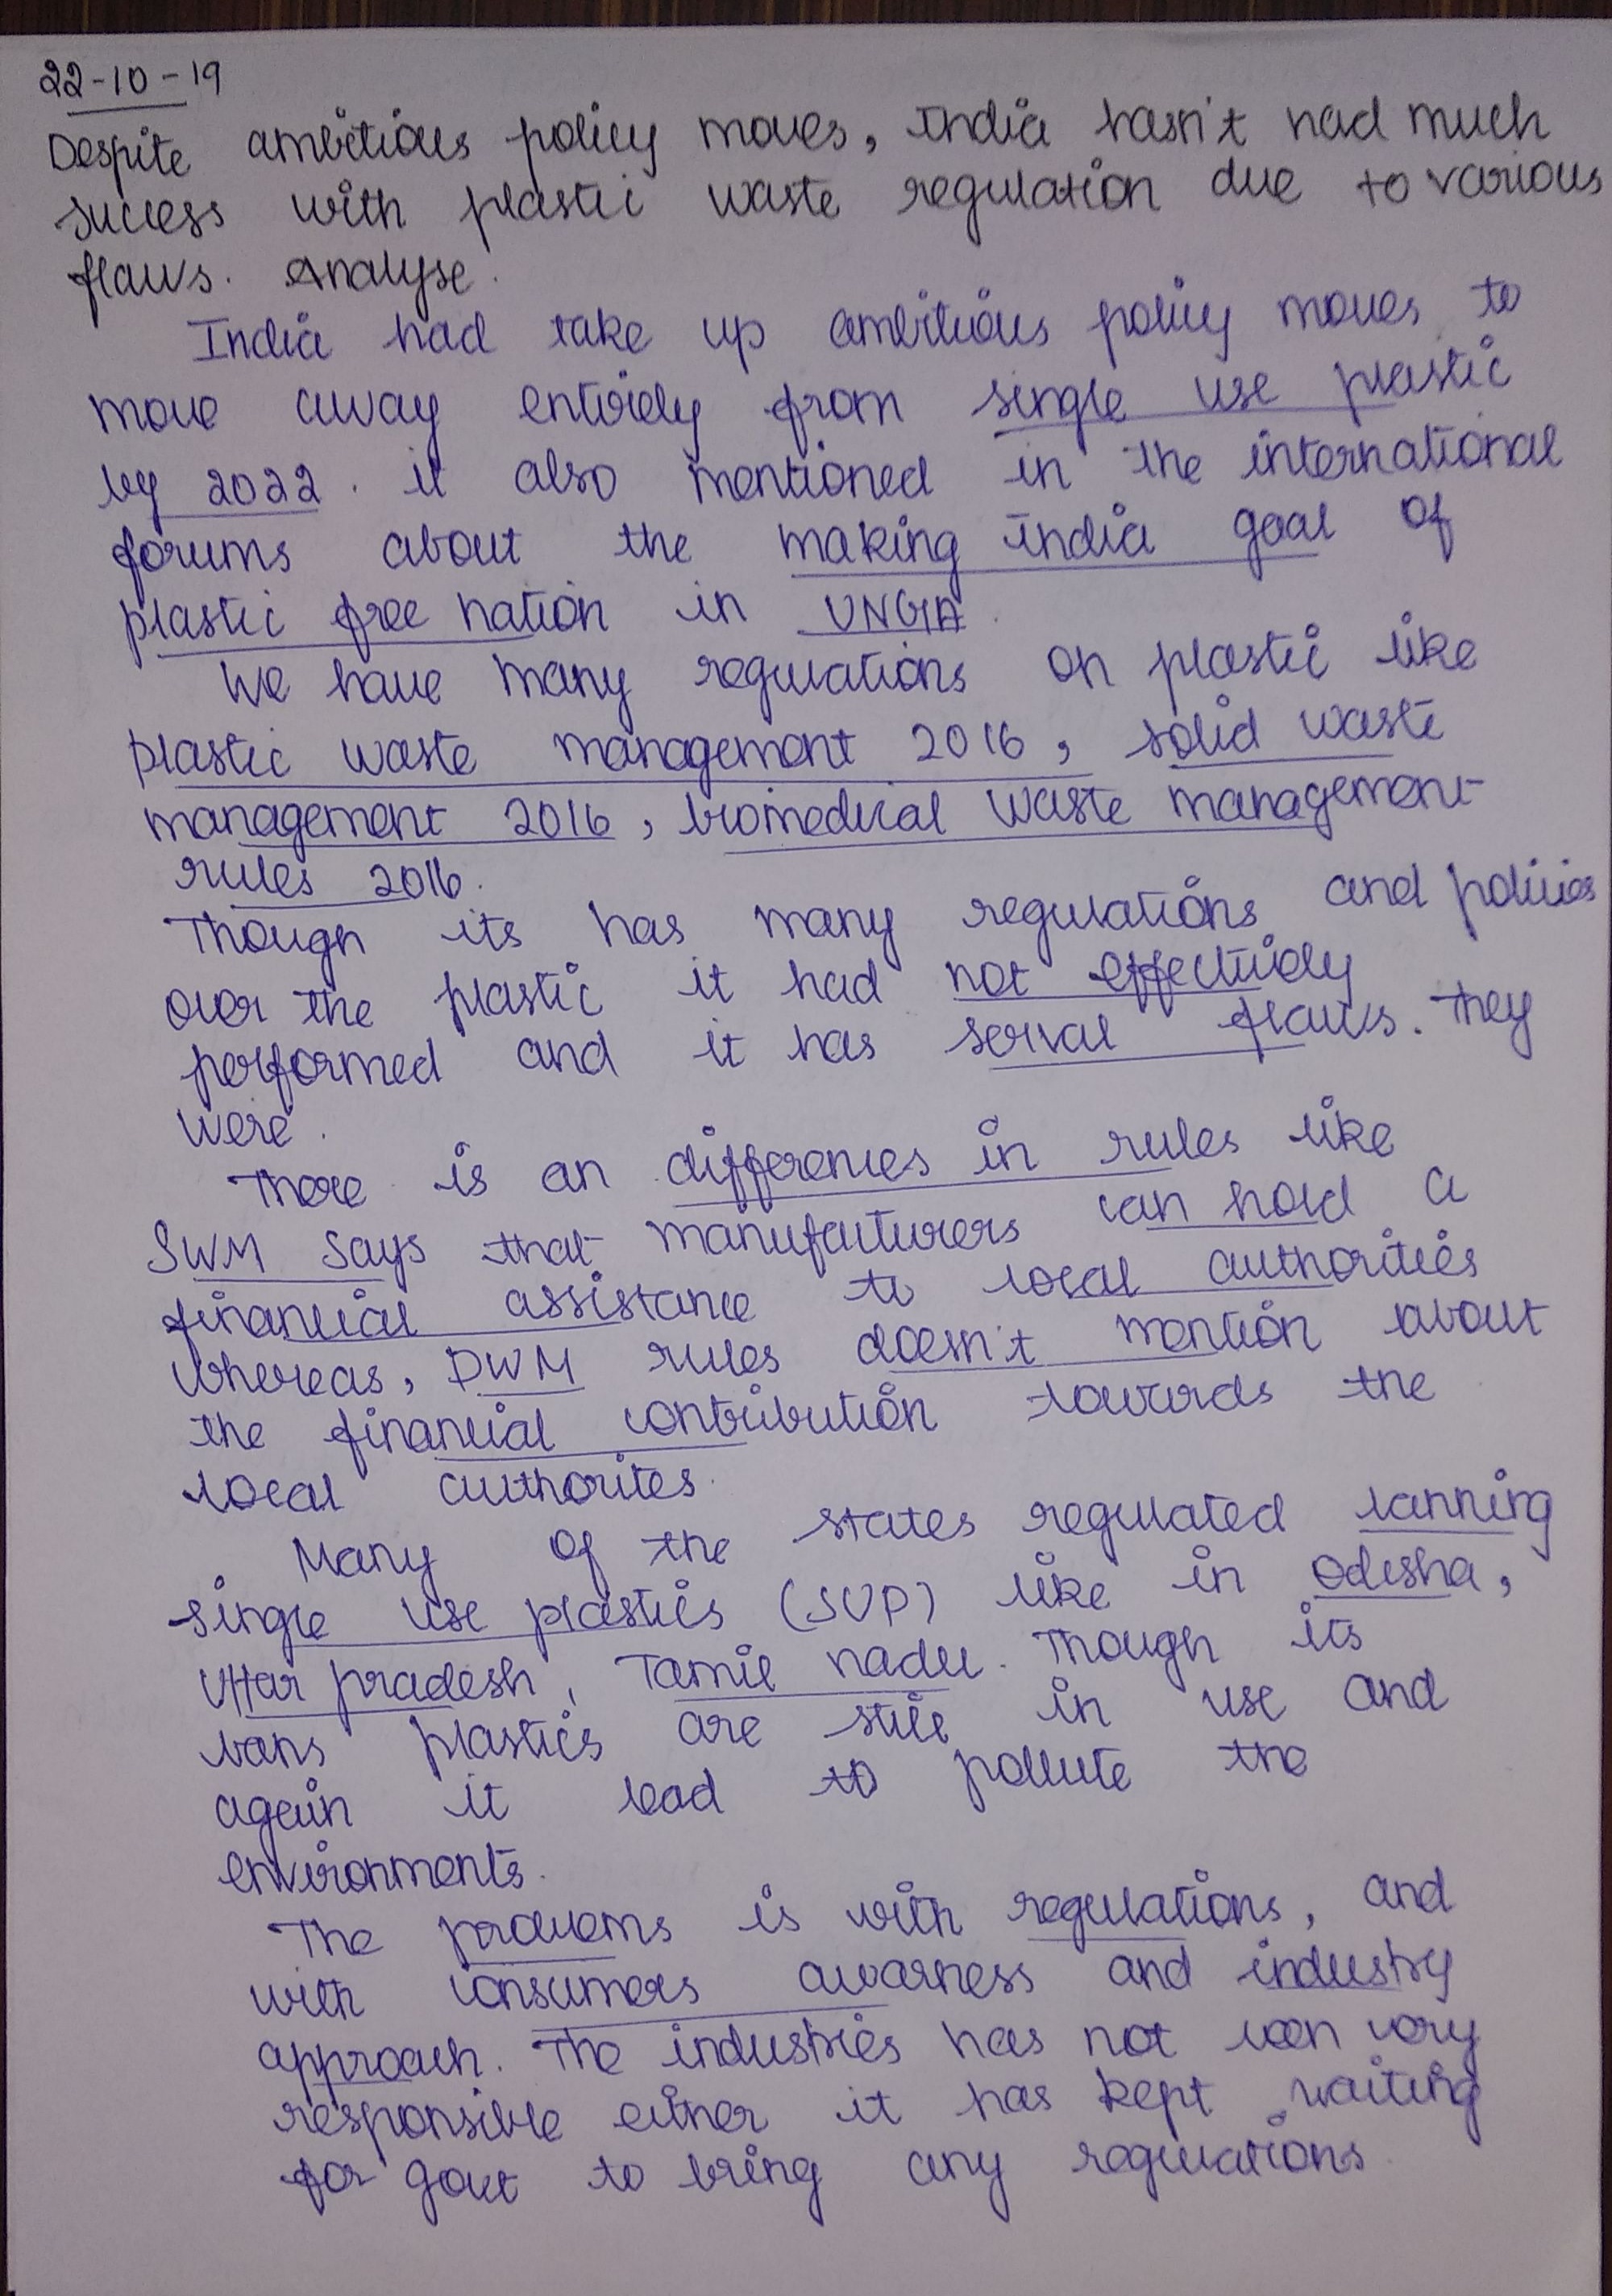 22-10-19
Despite ambitious policy moves, India hasn't had much
success with plastic waste regulation due to various
flaws. Analyse.
India had take up ambitious policy moves to
move away entirely from single use plastic
by 2022. it also mentioned in the international
forums about the making india goal of
plastic free nation in UNGA.
We have many regulations on plastic like
plastic waste management 2016, solid waste
management 2016, biomedical waste management
rules 2016.
Though its has many regulations and policies
over the plastic it had not effectively
performed and it has serval flaws. They
were.
There is an differences in rules like
SWM says that manufacturers can hold a
financial assistance to local authorities
whereas, PWM rules doesn't mention about
the financial contribution towards the
local authorites.
Many of the states regulated banning
single use plastics (SUP) like in Odisha,
Uttar pradesh, Tamil nadu. Though its
bans plastics are still in use and
again it lead to pollute the
environments.
The problems is with regulations, and
with consumers awarness and industry
approach. The industries has not been very
responsible either it has kept waiting
for govt to bring any regulations.